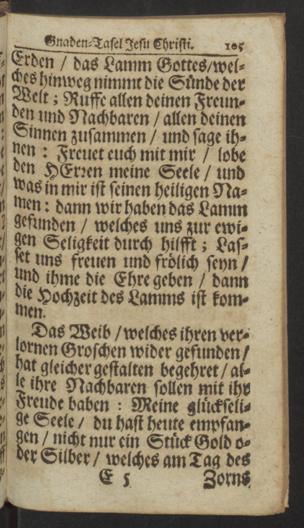 Gnaden-Tafel Jesu Christi. 105
Erden / das Lamm Gottes/wel-
ches hinweg nimmt die Sünde der
Welt ; Ruffe allen deinen Freun-
den und Nachbaren / allen deinen
Sinnen zusammen / und sage ih-
nen : Freuet euch mit mir / lobe
den HErren meine Seele / und
was in mir ist seinen heiligen Na-
men : dann wir haben das Lamm
gefunden / welches uns zur ewi-
gen Seligkeit durch hilfft ; Las-
set uns freuen und frölich seyn /
und ihme die Ehre geben / dann
die Hochzeit des Lamms ist kom-
men.
Das Weib / welches ihren ver-
lornen Groschen wider gefunden /
hat gleicher gestalten begehret / al-
le ihre Nachbaren sollen mit ihr
Freude haben : Meine glückseli-
ge Seele / du hast heute empfan-
gen / nicht nur ein Stück Gold o-
der Silber / welches am Tag des
E 5 Zorns